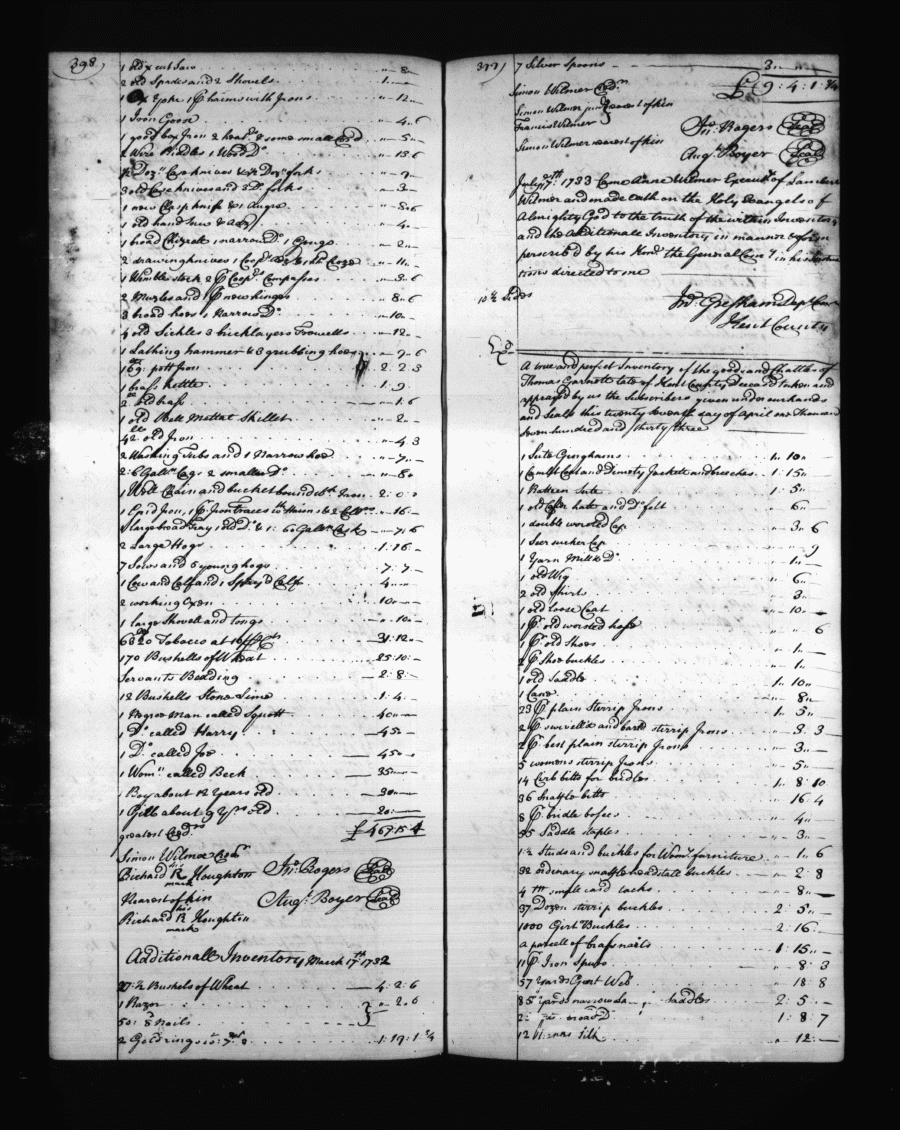 398)
1 old x cut Saw - „ - 8 -
2 old Spades and 2 Shovels - 1 „ -
1 Ox Yoke 1 Chains with Irons - „ - 12 „ -
1 Iron Goose - „ - 4 „ 6
1 good box Iron 2 heat.s & some small - „ - 5 „ -
2 Wire Riddles 1 Wood D.o - „ - 15 6
Doz.n Case knives Doz.n forks - „ - 9 -
3 old Case knives and 3 D.o forks - „ - 3 „ -
1 new Clasp knife & 1 Augre
1 old hand saw & Adz - „ - 4 „ -
1 broad Chizell 1 narrow D.o 1 Gouge - „ - 2 „ -
2 drawing knives 1 Coop.rs - „ - 11 „ -
1 Wimble stock 2 p.r Coop.rs Compasses - „ - 3 „ 6
2 Muzles and 1 p.r new hinges - „ - 8 „ 6
3 broad hoes 1 Narrow D.o - „ - 10 „ -
4 old Sickles 3 bricklayers Trowells - „ - 12 „ -
1 Lathing hammer & 3 grubbing hoes - „ - 7 - 6
169: pott Iron - 2 : 2 : 3
1 brass kettle - 1 : 9 .
2 old brass - „ - 1 : 6
1 old Bell Mettal Skillet - „ - 2 „ -
42 old Iron - „ - 4 3
2 Washing Tubs and 1 Narrow hoe - „ - 7 „ -
2: 6 Gall.n Cags 2 smaller D.o - „ - 8 „
1 Well Chain and bucket bound w.th Iron - 2 : 0 : 0
1 Spid Iron, 1 p.r Iron traces w.th Haims & 2 - „ - 16 : -
1 large bread Tray 1 old D.o & 1 : 60 Gall.n Cask - „ - 7 : 6
2 Large Hogs - 1 : 16 „ -
7 Sows and 5 young hogs - 7 : 7 „ -
1 Cow and Calf and 1 Spay'd Calf - 4 „ „ -
2 working Oxen - 10 „ - -
1 large Shovell and tongs - „ 10 „ -
6320 Tobacco at 10/ p C.t - 31 : 12 „ -
170 Bushells of Wheat - 25 : 10 : -
Servants Bedding - 2 : 8 : -
12 Bushells Stone Lime - 1 : 4 .
1 Negroe Man called Squott - 40 „ „ -
1 D.o called Harry - 45 : -
1 D.o called Joe - 45 „ -
1 Wom.n called Beck - 35 „ -
1 Boy about 12 Years old - 30 „ -
1 Girle about 9 Y.rs old - 20 : -
greatest Cred.rs £ 469 15 4
Simon Wilmer Cred.r
Richard R Houghton Jn.o Rogers Seal
his mark
Nearest of kin Aug.t Boyer Seal
Richard R Houghton
his mark
Additionall Inventory March 17.th 1732
27 ½ Bushels of Wheat - 4 : 2 : 6
1 Razor - „ - 2 „ 6
50: 8 nails
2 Gold rings - 1 : 19 : 1 ¾
399)
7 Silver Spoons - 3 „ „ -
£ 9 : 4 : 1 : ¾
Simon Wilmer Cred.r
Simon Wilmer jun.r nearest of kin
Francis Wilmer
Simon Wilmer nearest of kin Jn.o Rogers Seal
Aug.t Boyer Seal
July 7.th 1733 Came Anne Wilmer Execut.x of Lambert
Wilmer and made Oath on the Holy Evangels of
Almighty God to the truth of the within Inventory
and the Additionale Inventory in manner & form
perscrib'd by his Hon.r the Generall Com.y in his Instruc
tions directed to me
10 ½ Sides Jn.o Gresham Dep.t Com.y
Kent County
Ex.d
A true and perfect Inventory of the goods and Chattles of
Thomas Garnett late of Kent County Deceas'd taken and
appraised by us the Subscribers given under our hands
and Seals this twenty seventh day of April one Thousand
seven hundred and thirty three
1 Sute Ginghams - 1 „ 10 „ -
1 Camblt Coat and Dimoty Jackett and breeches - 1 : 15 „
1 Ratteen Sute - 1 : 5 „
1 old Castor hatt and D.o felt - 6 „ -
1 double worsted Cap - „ 3 „ 6
1 Seer sucker Cap - 9
1 Yarn Mill'd D.o - „ 1 „ -
1 old Wig - „ 6 „
2 old shirts - „ 3 „
1 old loose Coat - „ 10 „ -
1 p.r old worsted hose - „ „ 6
1 p.r old Shoes - „ 1 „ -
2 p.r Shoe buckles - „ 1 „
1 old Saddle - 1 „ 10 „
1 Cane - „ 8 „
23 p.r plain Stirrip Irons - 1 „ 5 „
2 p.r swivell'd and bar'd stirrip Irons - „ 3 . 3
2 p.r best plain stirrip Irons - „ 3 „ -
5 womens stirrip Irons - „ 5 „ -
14 Curb bitts for bridles - 1 „ 8 : 10
36 Snaffle bitts - „ 16 : 4
8 p.r bridle bosses - „ 4 „
55 Saddle staples - „ 3 „ -
1 ½ Studs and buckles for Wom.s furniture - „ 1 „ 6
32 ordenary snaffle headstale buckles - „ 2 : 8
4 m small card tacks - „ 8 „ -
37 Dozen stirrip buckles - 2 : 5 „ -
1000 Girt Buckles - 2 : 16 „
a parcell of brass nails - 1 : 15 „ -
11 p.r Iron Spurs - „ 8 : 3
57 Yards Girt Web - „ 18 : 8
85 Yards narrow saddles - 2 : 5 : -
broad D.o - 1 : 8 : 7
12 Silk - „ 12 : -